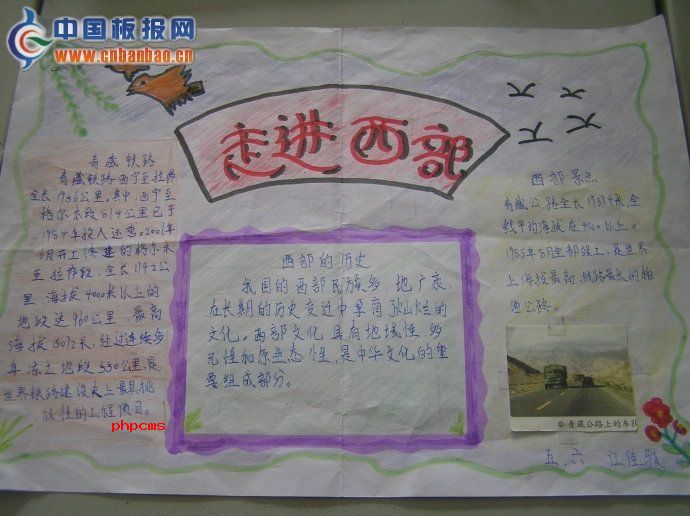 中国板报网
www.cnbanbao.cn
走进西部
青藏铁路
青藏铁路西宁至拉萨
全长1956公里。其中,西宁至
格尔木段814公里已于
1984年投入运营。2001年
6月开工修建的格尔木
至拉萨段,全长1142公
里,海拔4000米以上的
地段达960公里,最高
海拔5072米,经过连续多
年冻土地段550公里,是
世界铁路建设史上最具挑
战性的工程项目。
phpcms
西部的历史
我国的西部民族多,地广袤,
在长期的历史变迁中孕育了灿烂的
文化。西部文化具有地域性、多
元性和原生态性,是中华文化的重
要组成部分。
西部景点
青藏公路全长1937千米,全
线平均海拔在4000以上。
1985年8月全部竣工,是世界
上海拔最高、线路最长的柏
油公路。
©青藏公路上的车队
五.六 江佳